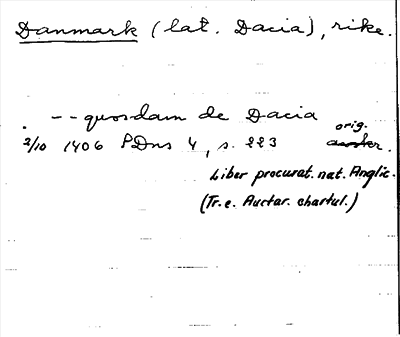 Danmark (lat. Dacia), rike.
-- quosdam de Dacia
orig.
2/10 1406 PDns 4, s. 223
Liber procurat. nat. Anglic.
(Tr. e. Auctar. chartul.)